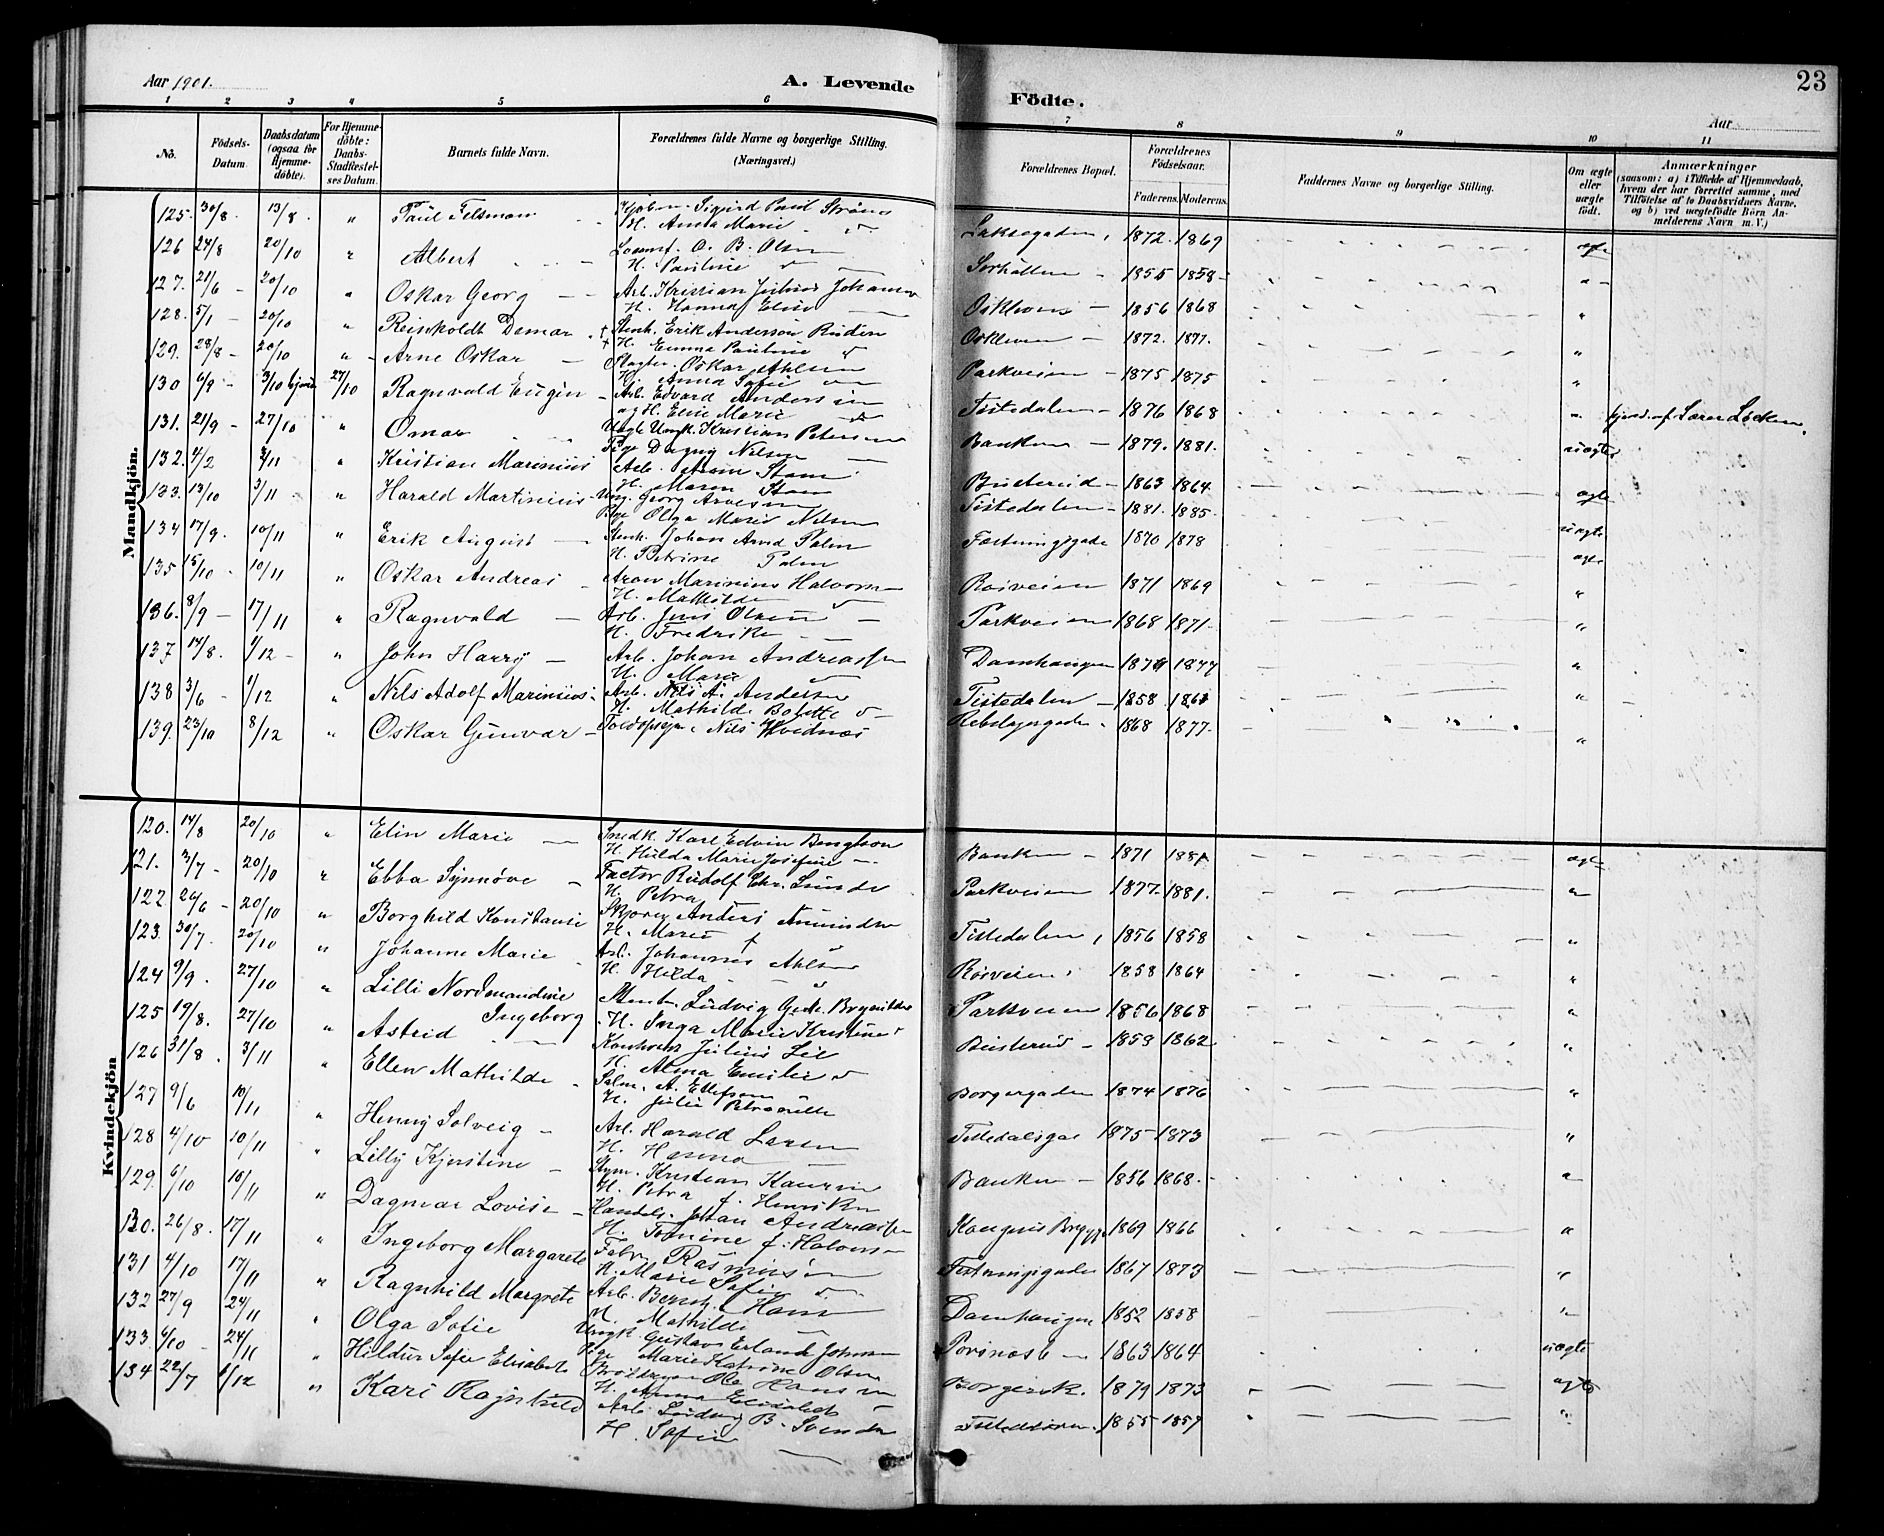 Aar 1901.
A. Levende
Födte.
Aar
23
1 2 3 4 5 6 7 8 9 10 11
No. Födsels-Datum. Daabsdatum (ogsaa for Hjemme-döbte). For Hjemme-döbte: Daabs-Stadfæstel-ses Datum. Barnets fulde Navn. Forældrenes fulde Navne og borgerlige Stilling. (Næringsvei.) Forældrenes Bopæl. Forældrenes Födselsaar. Faderens. Moderens. Faddernes Navne og borgerlige Stilling. Om ægte eller uægte födt. Anmærkninger (saasom: a) i Tilfælde af Hjemmedaab, hvem der har forrettet samme, med Tilföielse af to Daabsvidners Navne, og b) ved uægtefödte Börn An-melderens Navn m. V.)
Mandkjön.
125. 30/8 13/8 " Paul Felsman Kjøbm. Sigurd Paul Strøm
H. Anna Marie Laksegaden 1872. 1869 ægte
126 24/8 20/10 " Albert O. B. Olsen
H. Pauline Sorhalten 1855 1858 "
127. 21/6 20/10 " Oskar Georg Arb. Kristian Julius Johansen
H. Hanna Elise Oskleven 1856 1868 "
128. 5/1 20/10 " Reinholdt Demar Stenh. Erik Anderson Ruden
H. Emma Pauline Oskleven 1872. 1877. "
129. 28/8 20/10 " Arne Oskar Slagter Oskar Ahlsen
H. Anna Sofie Parkveien 1875 1875 "
130 6/9 3/10 hjemd. 27/10 Ragnvald Eugen Arb. Edvard Andersen
og H. Elise Marie Tistedalen 1876 1868 " hjemd. af Løken.
131. 21/9 27/10 " Omar Ungk. Kristian Petersen
Pige Dagny Nilsen Banken 1879. 1881. uægte
132. 4/2 3/11 " Kristian Marinius Arb. Aron Stam
H. Maren Stam Busterud 1863 1864 ægte
133. 13/10 3/11 " Harald Martinius Ung. Georg Arvesen
Pige Olga Marie Nilsen Tistedalen 1881. 1885. uægte
134 17/9. 10/11 " Erik August Stenh. Johan Arvid Palm
H. Petrine Palm Fæstningsgade 1870 1878 ægte
135 15/10 10/11 " Oskar Andreas Aron Marinius Halvorsen
H. Mathilde Roiveien 1871 1869 "
136. 8/9 17/11 " Ragnvald Arb. Jens Olsen
H. Fredrike Parkveien 1868 1871. "
137 14/8. 1/12 " John Harry Arb. Johan Andreassen
H. Marie Damhaugen 1879 1877 "
138 3/6 1/12 " Nils Adolf Marinius Arb. Nils A. Andersen
H. Mathilde Bolette Tistedalen 1858 1863 "
139. 23/10 8/12 " Oskar Gunvar Toldopsyn. Nils Hvidnæs Rebslagergaden 1868 1877. "
Kvindekjön
120. 14/8 20/10 " Elin Marie Snedk. Karl Edvin Bengtson
H. Hulda Marie Josefine Banken 1871 1881 ægte
121. 3/7 20/10 " Ebba Synnøve Factor Rudolf Chr. Lunde
H. Petra Parkveien 1877. 1881. "
122. 26/6 20/10 " Borghild Konstanse Anders Amundsen
H. Marie Tistedalen 1856 1858 "
123. 30/7. 20/10 " Johanne Marie Arb. Johannes Ahlsen
H. Hilda Roiveien 1858 1864 "
124 9/9. 27/10 " Lilli Nordmandine Ludvig Brynildsen
H. Inga Marie Kristine Parkveien 1856 1868 "
125 19/8. 27/10 " Astrid Ingeborg Julius Lie
H. Alma Emilie Busterud 1859 1862 "
126 31/8. 3/11 " Ellen Mathilde A. Ellefsen
H. Julie Petronille Borgergaden 1874 1876 "
127 9/6 10/11 " Henny Solveig Arb. Harald Larsen
H. Hanna Tistedalsgae 1875 1873 "
128 4/10 10/11 " Lilly Kjerstine Kristian Kaurin
H. Petra f. Henriksen Banken 1856 1868 "
129. 6/10 10/11 " Dagmar Lovise Handels. Johan Andreassen
H. Tomine f. Halvorsen Kongens Brygge 1869 1866 "
130. 26/8. 17/11 " Ingeborg Margarete Fabr. Rasmussen
H. Marie Sofie Festningsgaden 1867 1873 "
131 4/10 17/11 " Ragnhild Margrete Arb. Bernt Hans
H. Mathilde Damhaugen 1852 1858 "
132 27/9 24/11 " Olga Sofie Ungk. Gustav Erland Johnsen
Pige Marie Katrine Olsen Porsnæs 1863 1864 uægte
133. 6/10 24/11 " Hildur Sofie Elisabet Ole Hansen
H. Anna Elisabeth Borgersk. 1879 1873 ægte
134 22/7 1/12 " Kari Ragnhild Arb. Ludvig B. Svendsen
H. Sofie Tistedalen 1855 1857 "